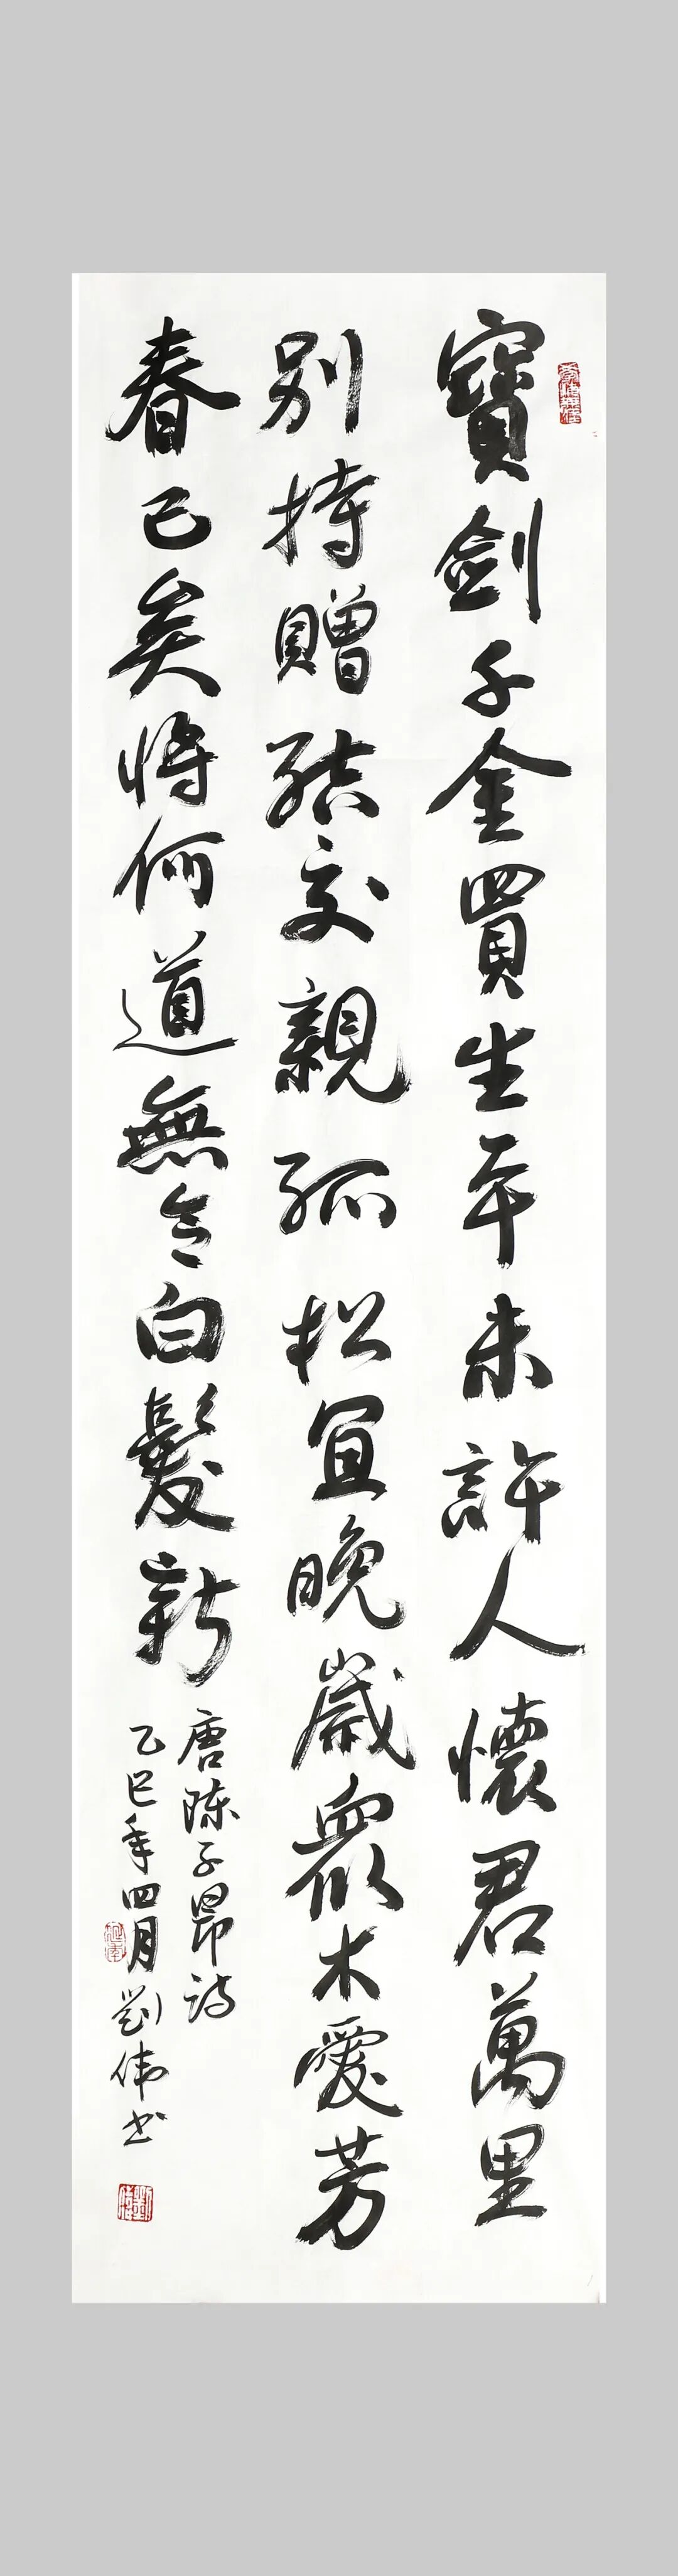 寶劍千金買生平未許人懷君萬里
別持贈結交親孤松宜晚歲衆木愛芳
春已矣將何道無令白髮新
唐陈子昂诗
乙巳年四月劉伟书